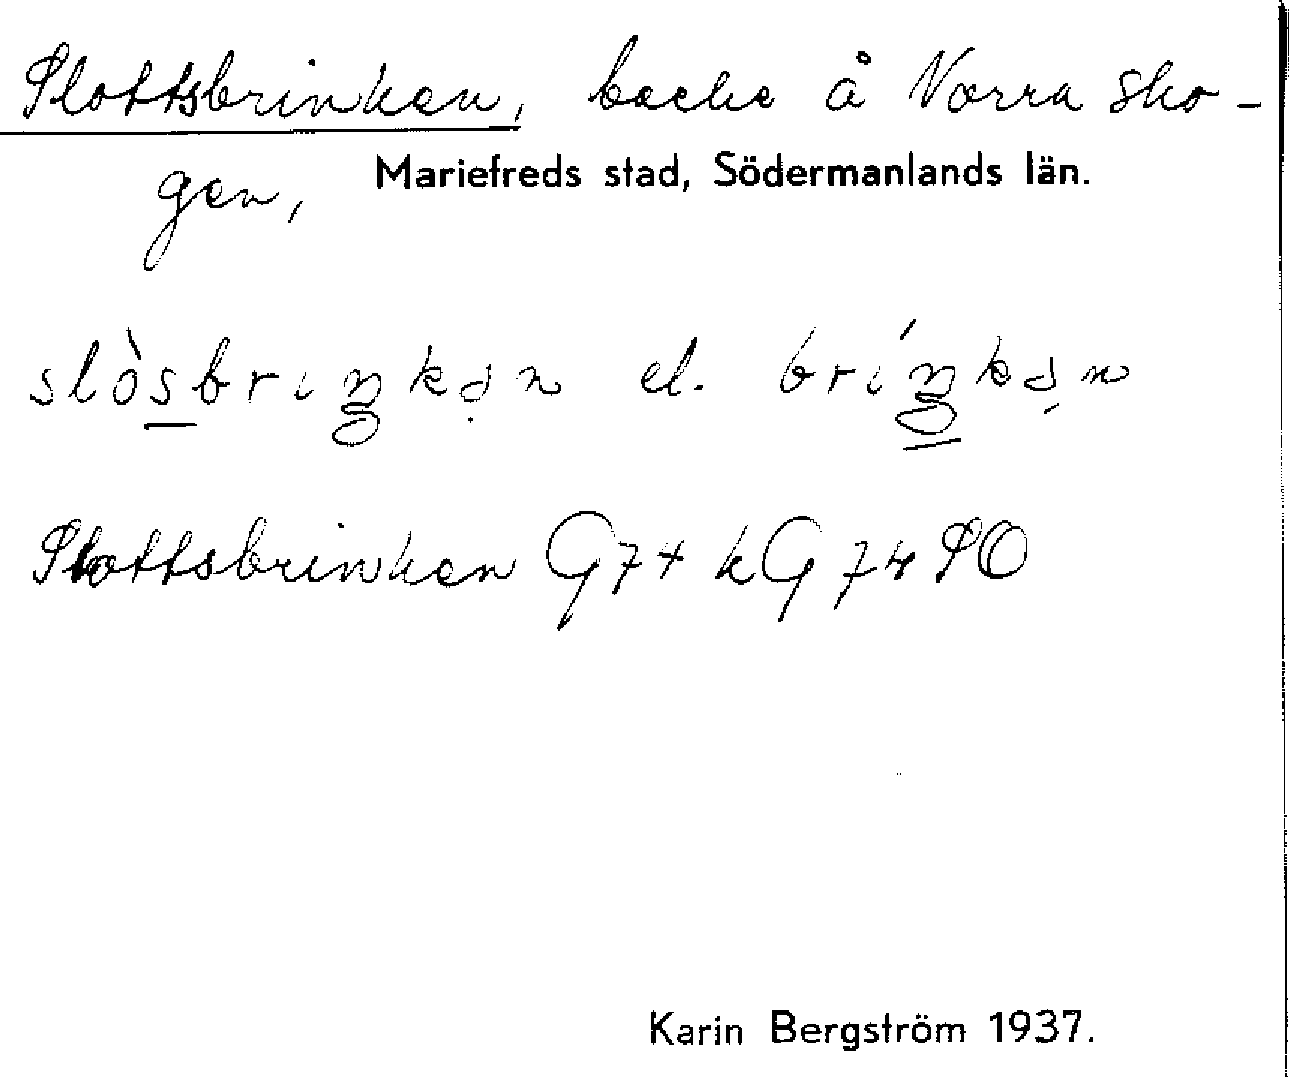 Slottsbrinken, backe å Norra Sko-
gen, Mariefreds stad, Södermanlands län.
slòsbriŋkən el. bríŋkən
Slottsbrinken G74 kG74 SO
Karin Bergström 1937.